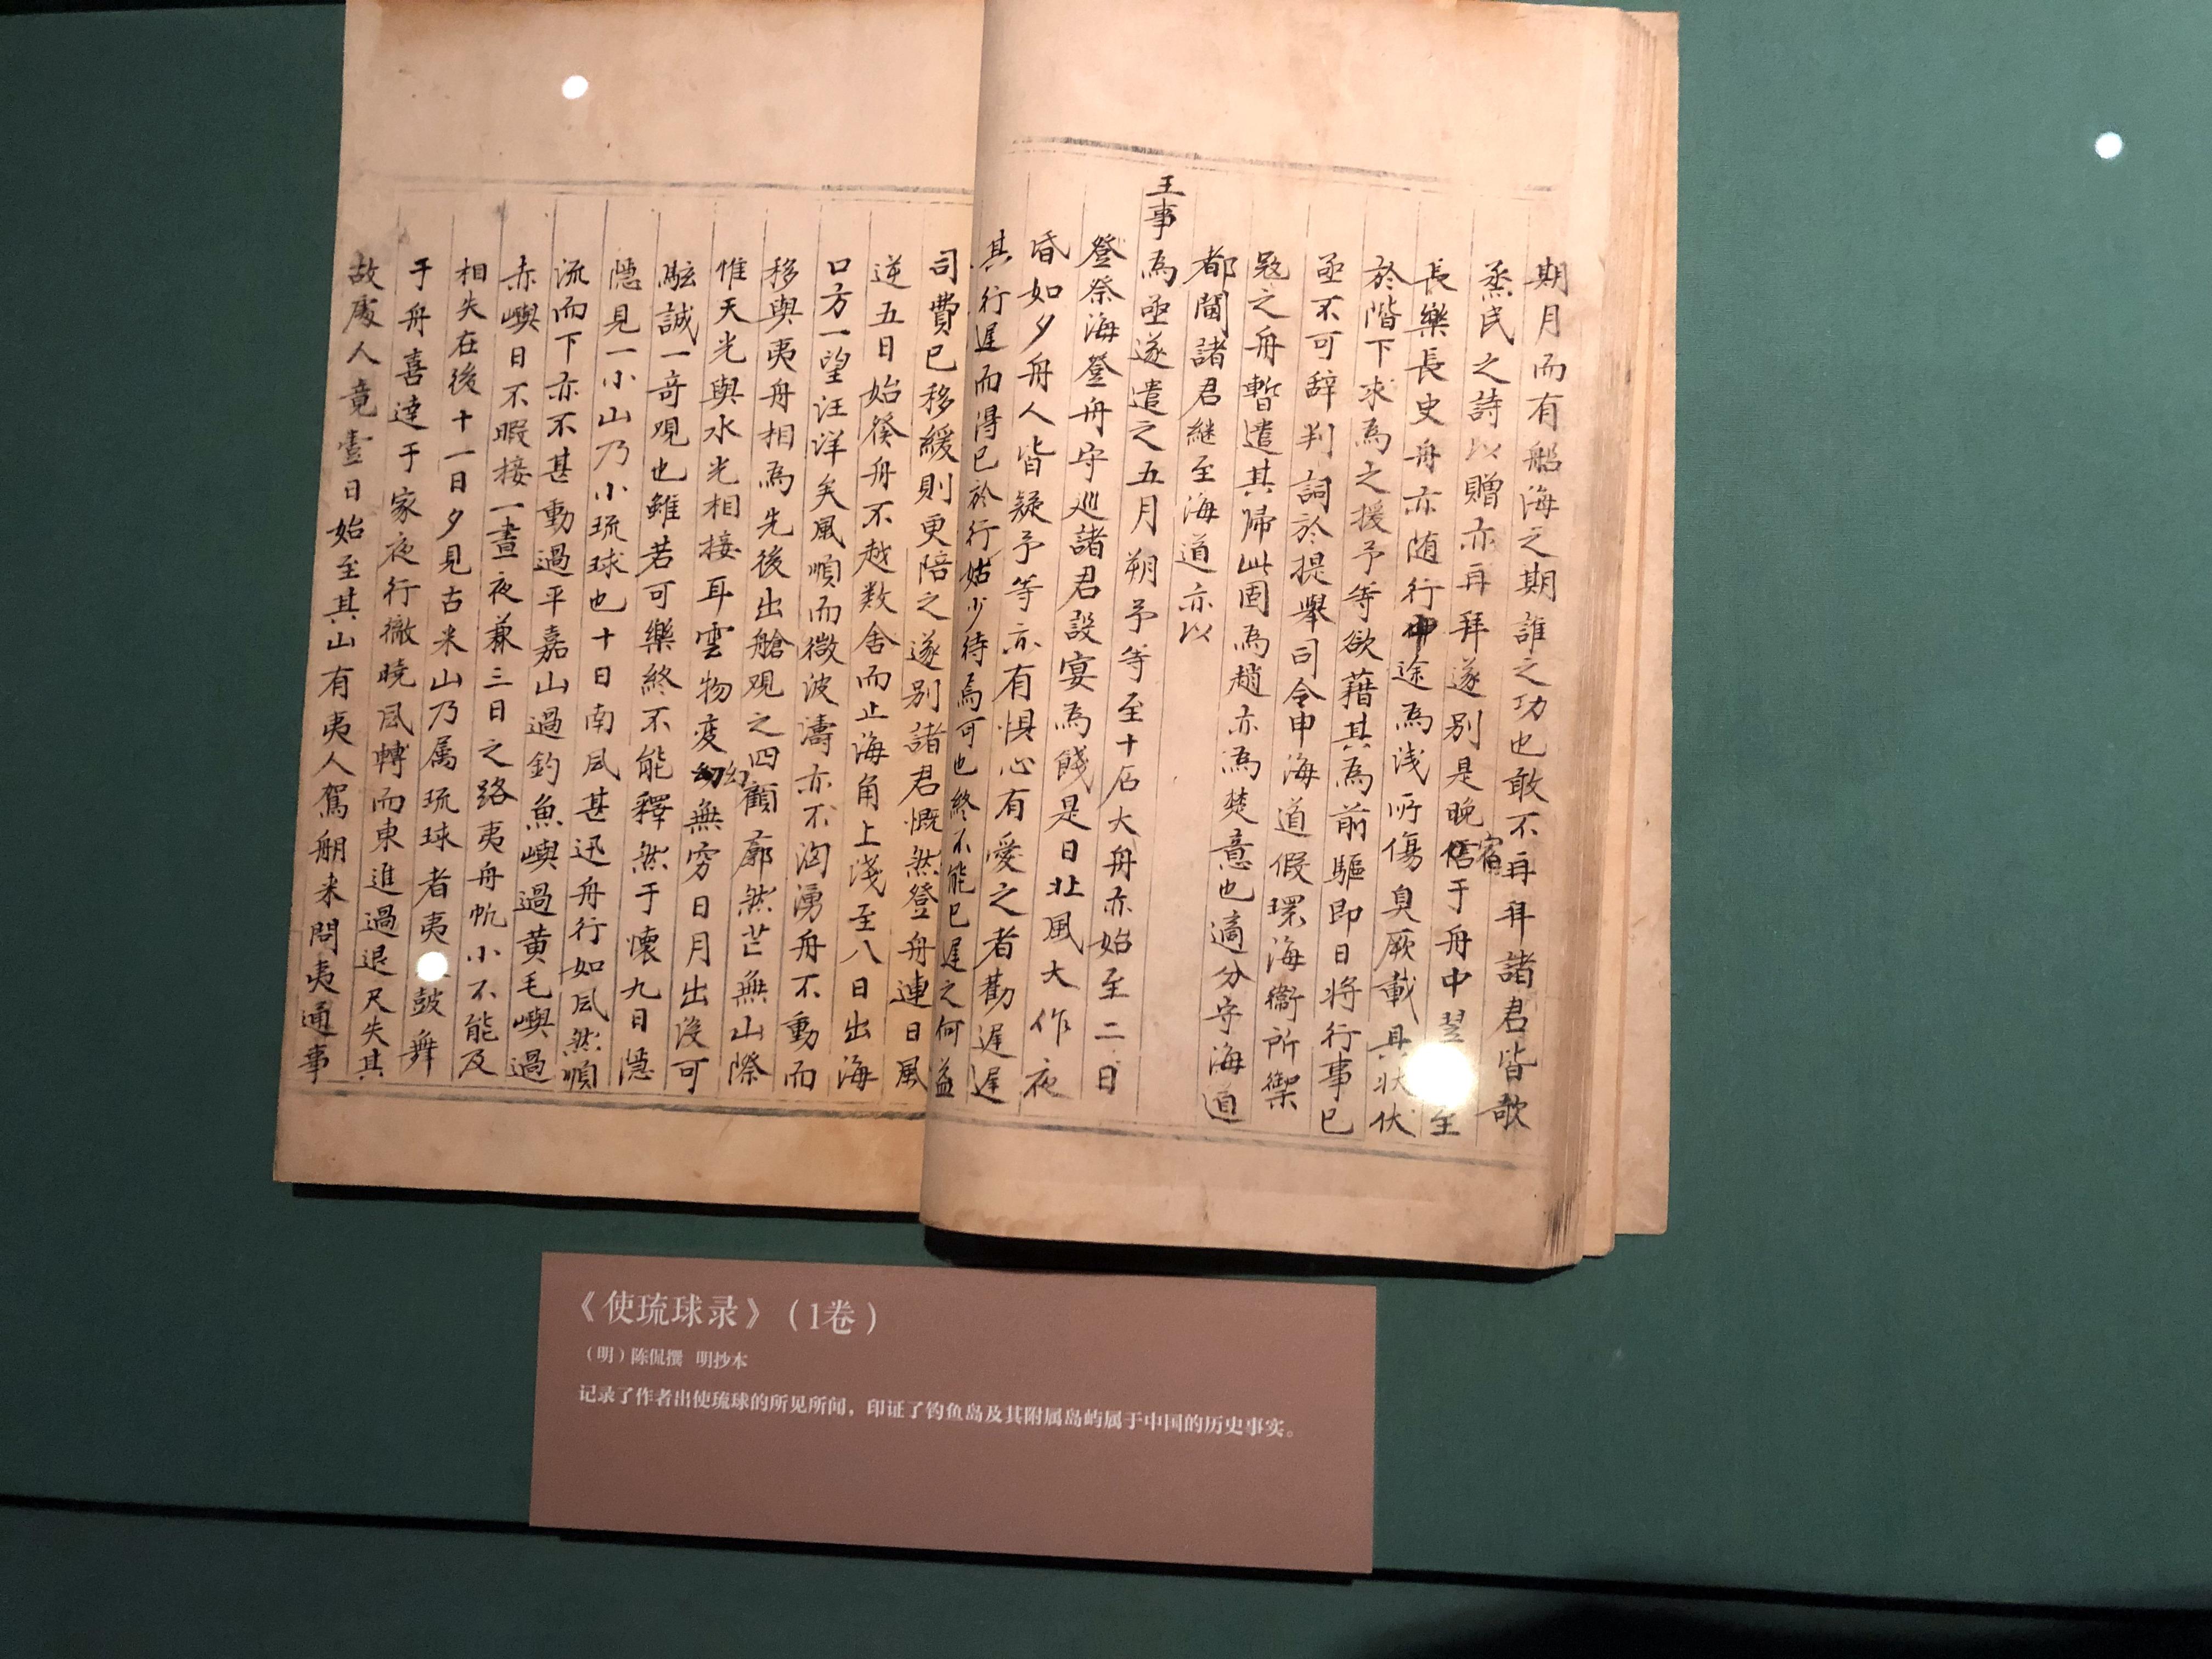 期月而有船海之期誰之功也敢不再拜諸君皆歌
烝民之詩以贈亦再拜遂别是晚宿于舟中翌至
長樂長史舟亦随行中途為浅所傷臭厥載具状伏
於階下求為之援予等欲藉其為前驅即日将行事已
亟不可辞判詞於提舉司令申海道假環海衛所禦
冦之舟暫遣其歸此固為趙亦為楚意也適分守海道
都閫諸君継至海道亦以
王事為亟遂遣之五月朔予等至十石大舟亦始至二日
登祭海登舟守巡諸君設宴為餞是日北風大作夜
昏如夕舟人皆疑予等亦有惧心有愛之者勸遲遲
其行遲而得已於行姑少待焉可也終不能已遲之何益
司費已移緩則更陪之遂别諸君慨然登舟連日風
逆五日始發舟不越数舍而止海角上淺至八日出海
口方一望汪洋矣風順而微波濤亦不洶湧舟不動而
移與夷舟相為先後出艙观之四顧廓然茫無山際
惟天光與水光相接耳雲物変幻無穷日月出没可
駭誠一奇观也雖若可樂終不能釋然于懷九日隠
隠見一小山乃小琉球也十日南风甚迅舟行如风然順
流而下亦不甚動過平嘉山過釣魚嶼過黄毛嶼過
赤嶼目不暇接一晝夜兼三日之路夷舟帆小不能及
相失在後十一日夕見古米山乃属琉球者夷鼓舞
于舟喜逹于家夜行徹曉风轉而東進過退尺失其
故處人竟壹日始至其山有夷人駕舡来問夷通事
《使琉球录》（1卷）
（明）陈侃撰 明抄本
记录了作者出使琉球的所见所闻，印证了钓鱼岛及其附属岛屿属于中国的历史事实。